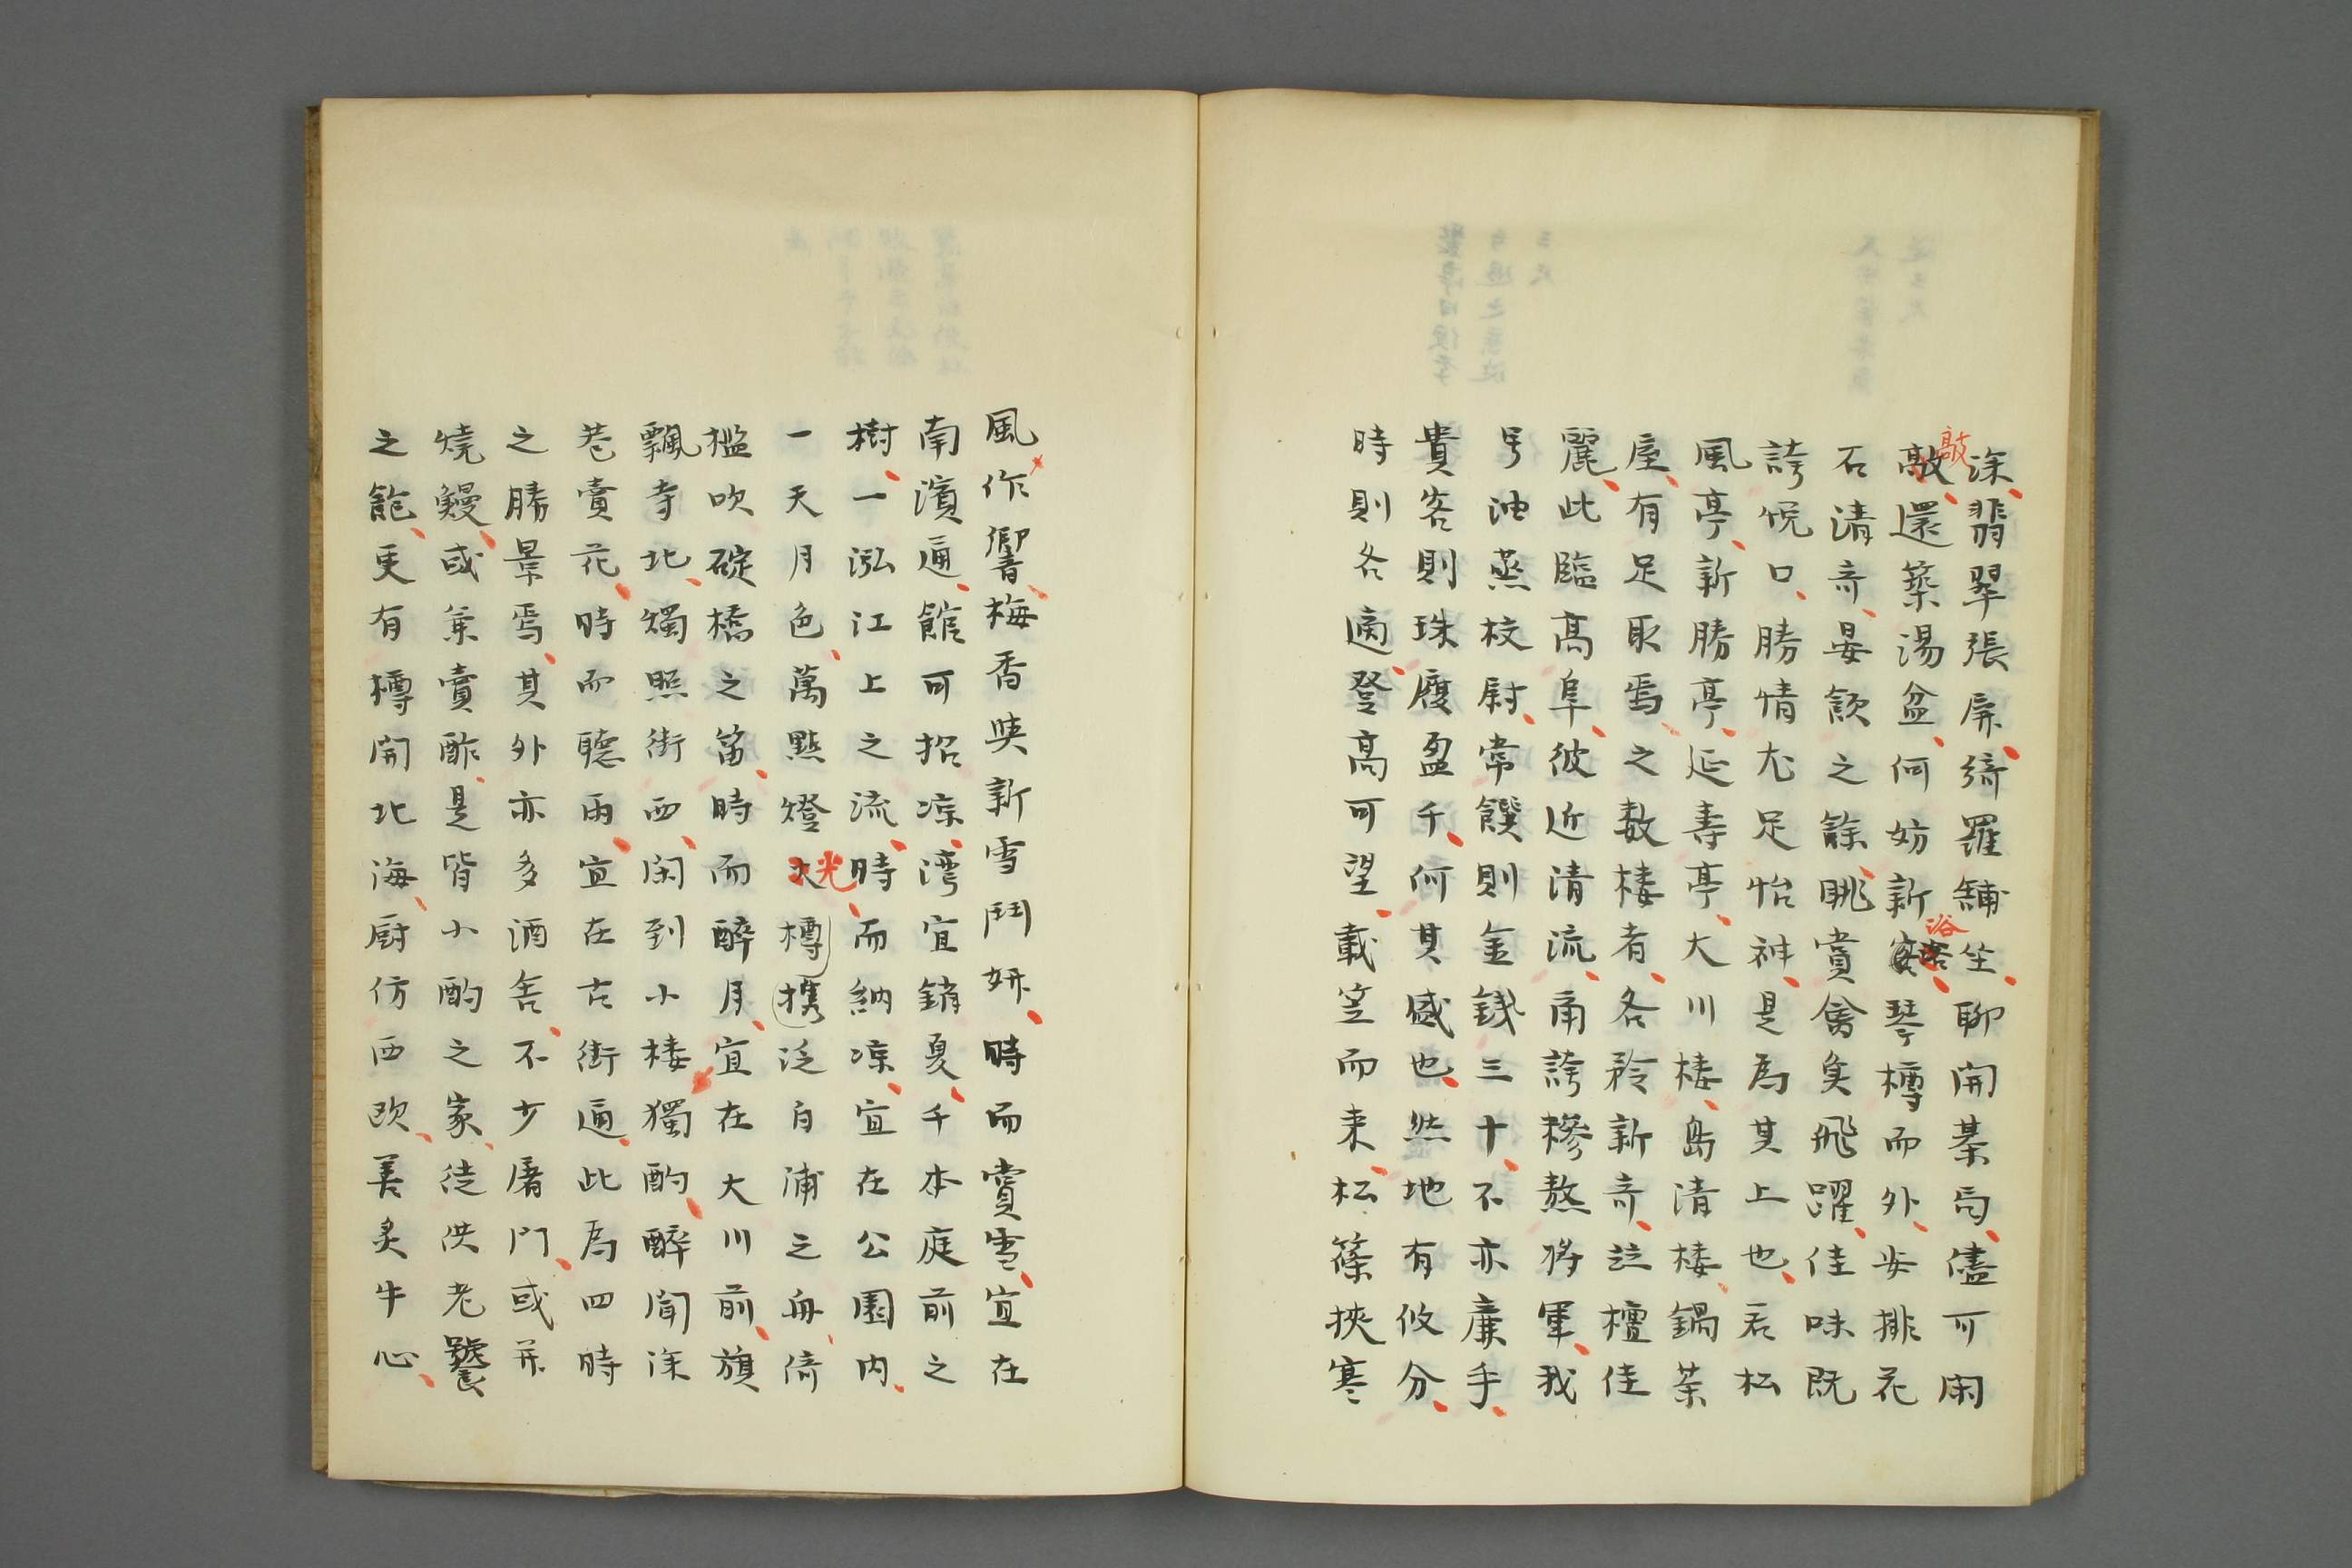 深翡翠張屏綺羅鋪坐聊開棊局儘可閑
敲還築湯盆何妨新浴琴樽而外安排花
石清奇晏飲之餘眺賞禽魚飛躍佳味既
誇悅口勝情尤足怡神是為其上也若松
風亭新勝亭延壽亭大川樓島清樓鍋茶
屋有足取焉之数樓者各矜新奇竝檀佳
麗此臨髙阜彼近清流南誇糝熬將軍我
号油蒸校尉常饌則金錢三十不亦廉乎
貴客則珠履盈千何其盛也然地有攸分
時則各適登髙可望載笠而来松篠挾寒
風作響梅香與新雪鬥妍時而賞雪宜在
南濱逼館可招凉湾宜銷夏千本庭前之
樹一泓江上之流時而納凉宜在公園内
一天月色萬點燈光樽携泛月浦之舟倚
檻吹碇橋之笛時而醉月宜在大川前旗
飄寺北燭照街西閑到小樓獨酌醉聞深
巷賣花時而聽雨宜在古街逼此為四時
之勝景焉其外亦多酒舎不少屠門或并
燒鰻或兼賣酢是皆小酌之家徒供老饕
之飽更有樽開北海厨仿西欧善炙牛心